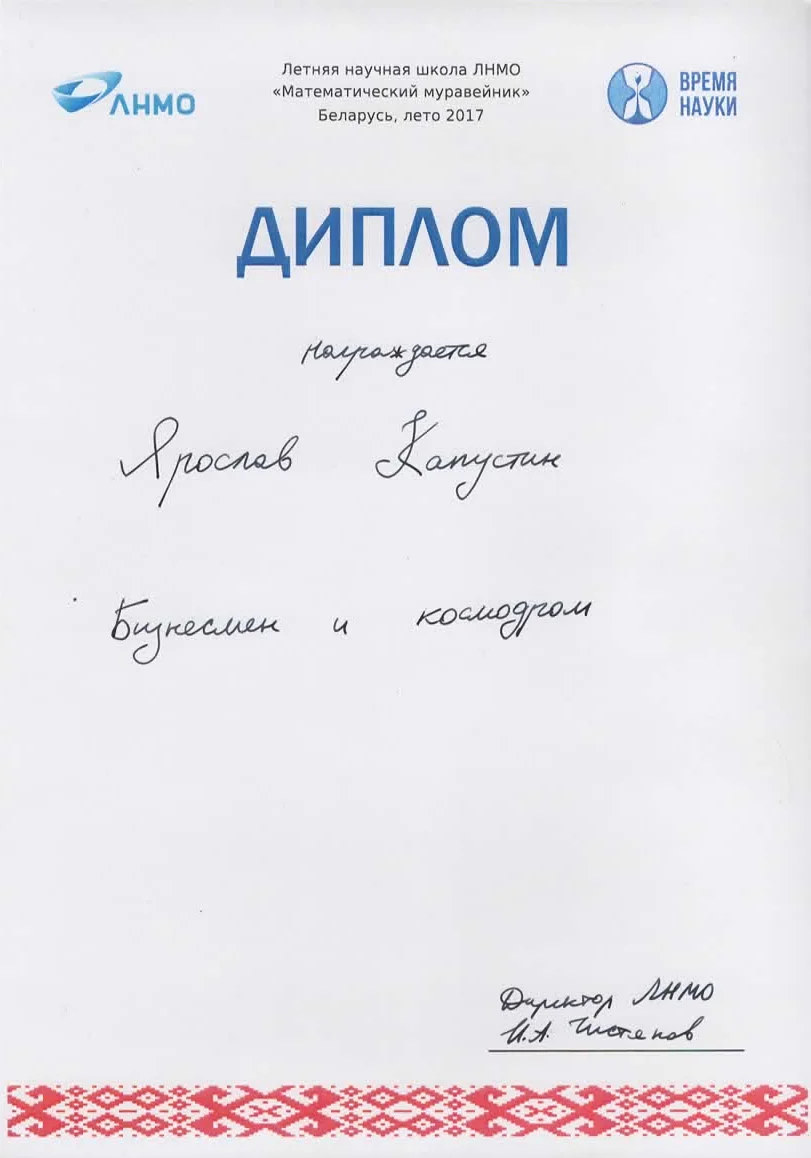 ЛНМО
Летняя научная школа ЛНМО
«Математический муравейник»
Беларусь, лето 2017
ВРЕМЯ
НАУКИ
ДИПЛОМ
награждается
Ярослав Капустин
Бизнесмен и космодром
Директор ЛНМО
И.А. Чистяков